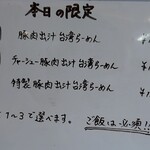 本日の限定
豚肉出汁台湾らーめん
チャーシュー豚肉出汁台湾らーめん
特製 豚肉出汁台湾らーめん
1〜3で選べます。
ご飯は必須!!